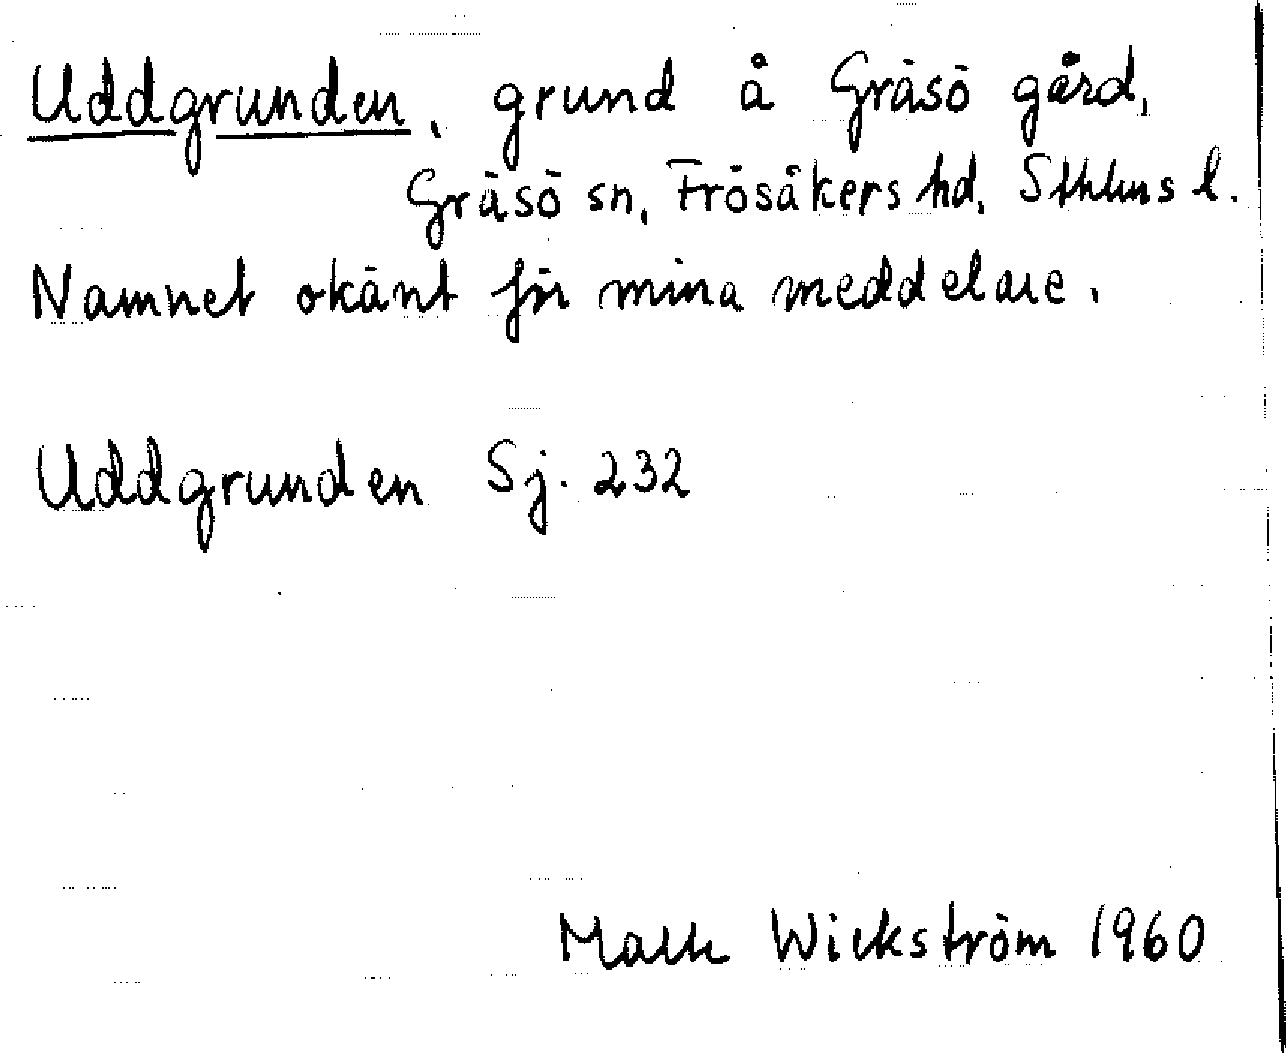 Uddgrunden, grund å Gräsö gård,
Gräsö sn, Frösåkers hd, Sthlms l.
Namnet okänt för mina meddelare.
Uddgrunden Sj. 232
Wickström 1960